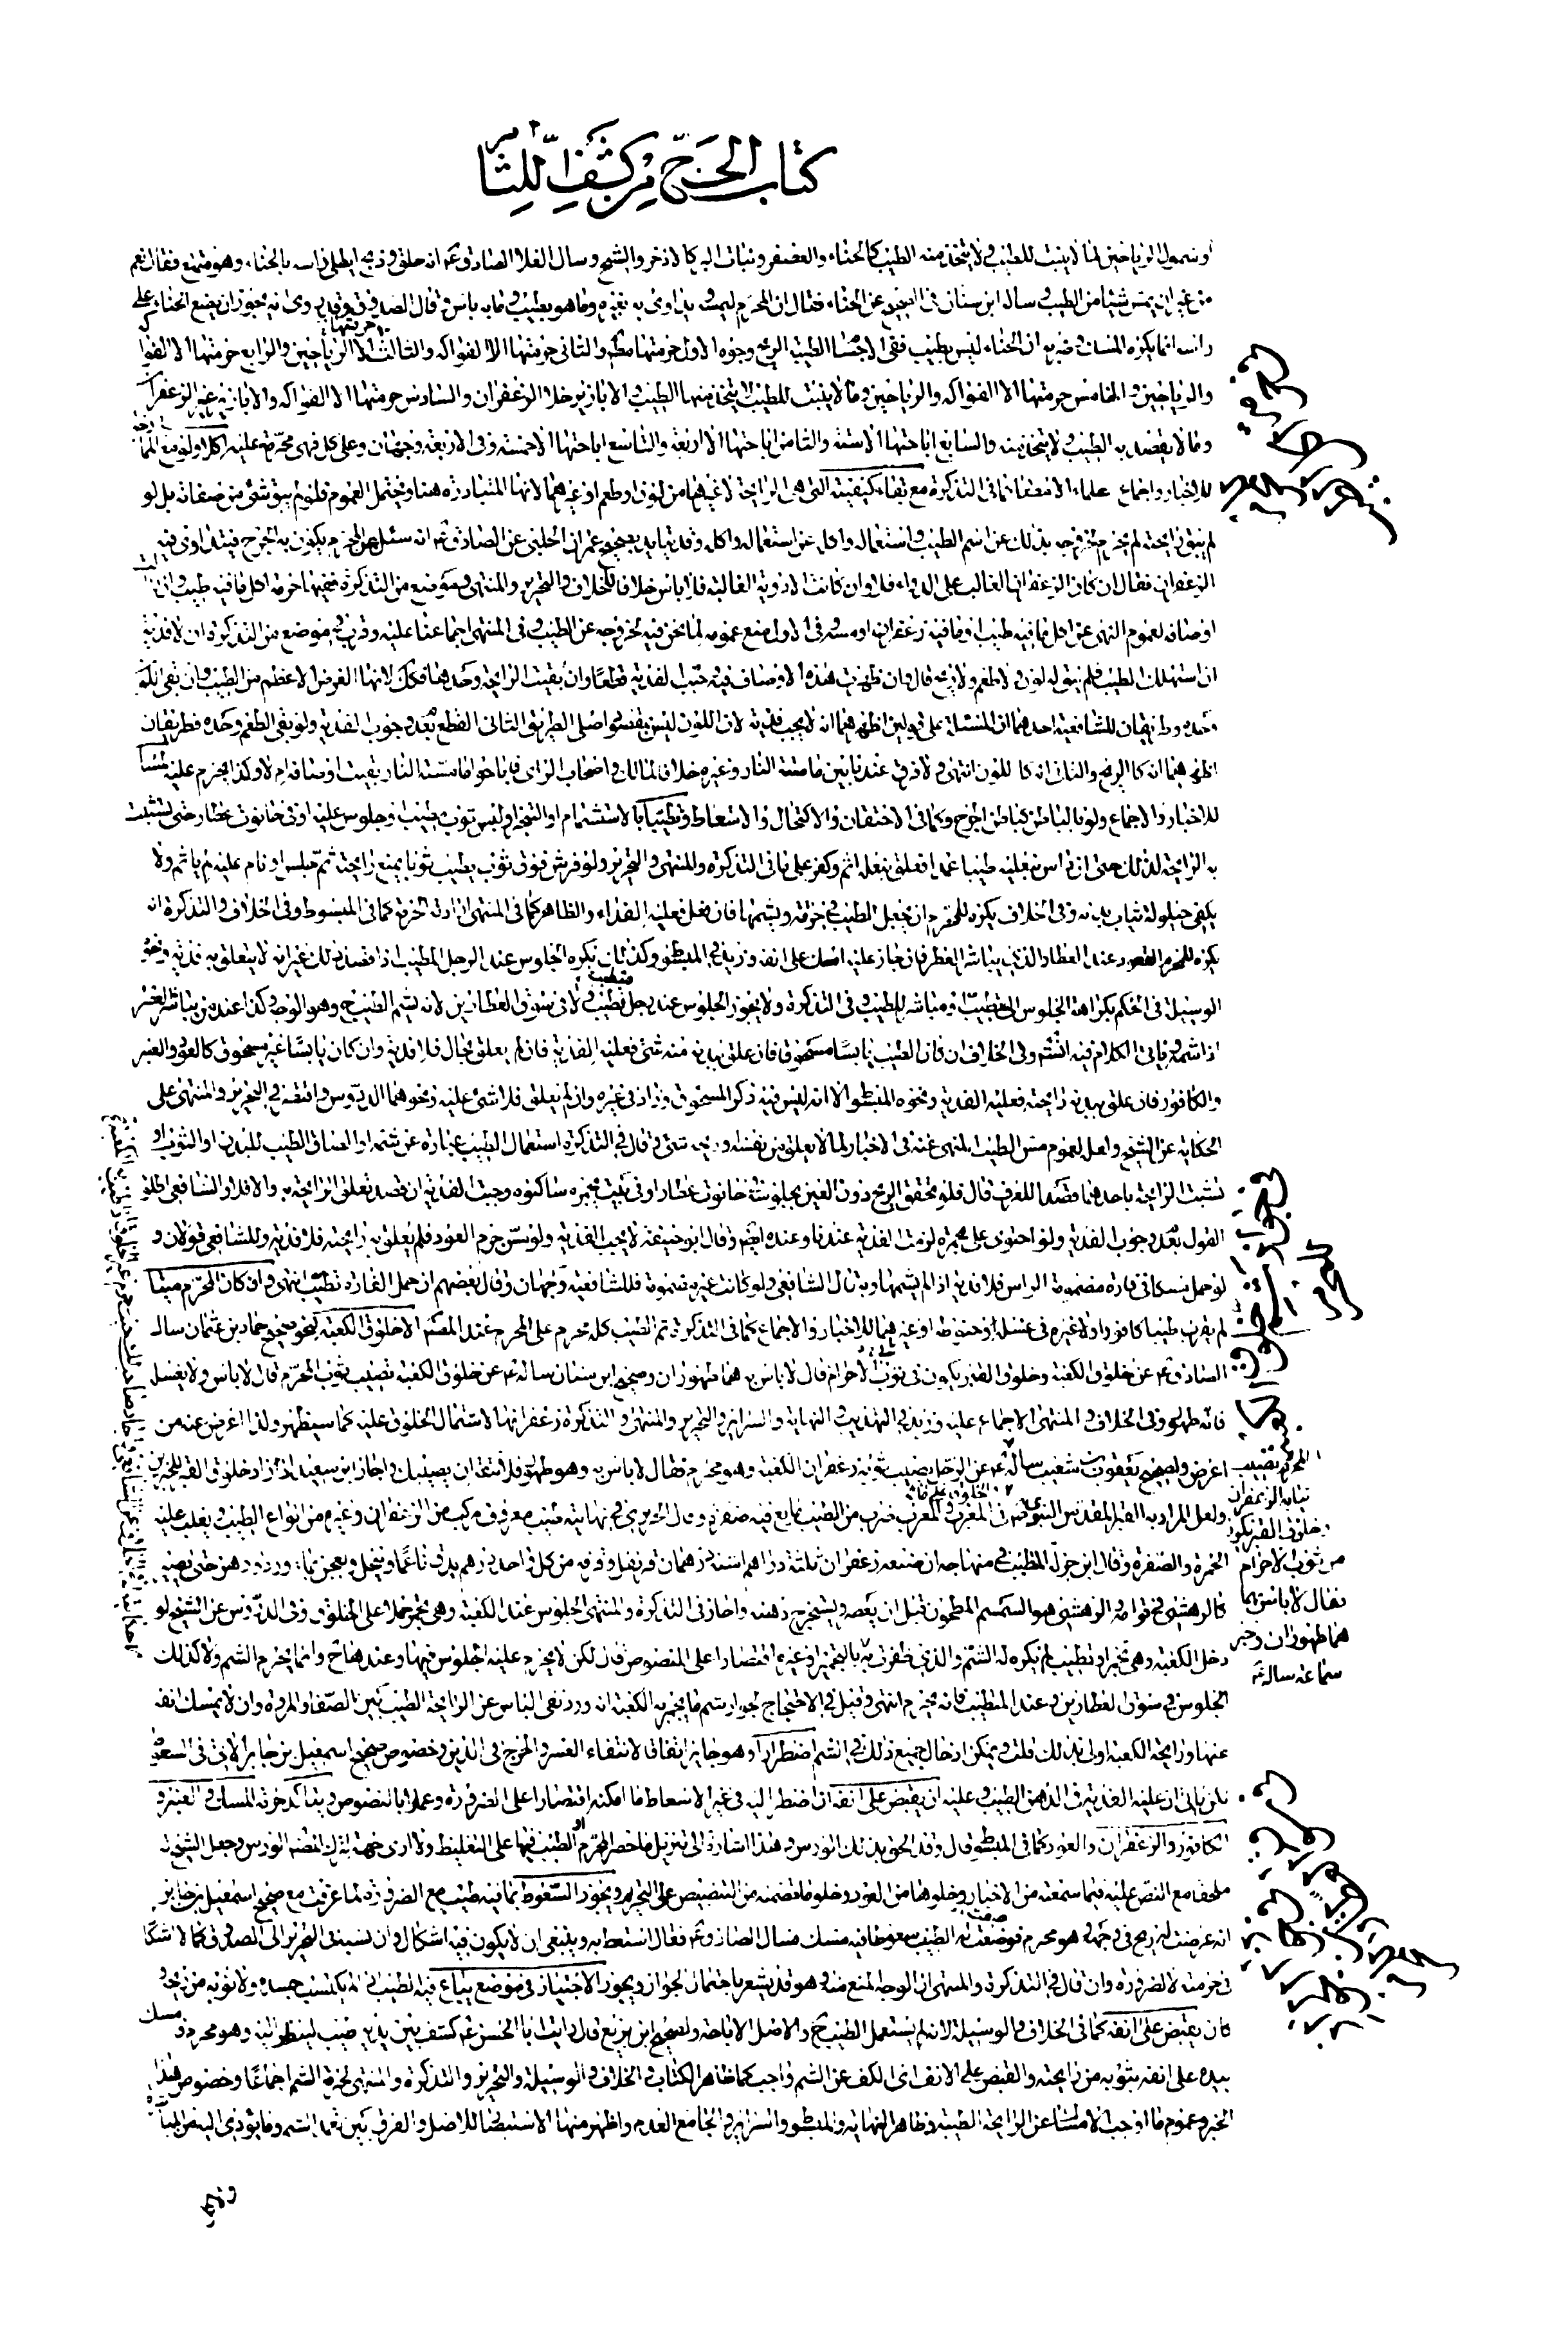 كتاب الحج من كشف اللثام
وشمول الرياحين لما لا ينبت للطيب ولا يتخذ منه الطيب كالحناء والعصفر ونبات البر كالاذخر والشيح وسال العلا الصادق ع انه حلق وذبح ايطلي راسه بالحناء وهو متمتع فقال نعم
من غير ان يمس شيئا من الطيب وساله ابن سنان في الصحيح عن الحناء فقال ان المحرم ليمسه ويداوى به بعيره وما هو بطيب وما به باس وقال الصدوق وقد روى انه يجوز ان يضع الحناء على
راسه انما يكره المسك وضربه ان الحناء ليس بطيب ففى الاجناس الطيب اربع وجوه الاول حرمتها مطلقا والثانى حرمتها الا الفواكه والثالث الا الرياحين والرابع حرمتها الا الفواكه
والرياحين والخامس حرمتها الا الفواكه والرياحين وما لا ينبت للطيب ولا يتخذ منها الطيب والا بازير خلا الزعفران والسادس حرمتها الا الفواكه والابازير غير الزعفران
وما لا يقصد به الطيب ولا يتخذ منه والسابع اباحتها الا ستة والثامن اباحتها الا اربعة والتاسع اباحتها الا خمسة وفى الاربعة وجهان وعلى كل فهى محرمة عليه اكلا ولو مع الممازجة
للاخبار واجماع علماء الامصار كما فى التذكرة مع بقاء كيفيته التى هى الرايحة لا غيرها من لون او طعم او غيرهما لانها المتبادرة هنا ويحتمل العموم فلو لم يبق شئ من صفاته بل لو
لم يبق رايحة لم يحرم لخروجه بذلك عن اسم الطيب واستعماله واكله عن استعماله واكله وقد يؤيد بصحيح عمران الحلبى عن الصادق ع انه سئل عن المحرم يكون به الجرح فيتداوى فيه
الزعفران فقال ان كان الزعفران الغالب على الدواء فلا وان كانت الادوية الغالبة فلا باس خلافا للخلاف والتحرير والمنتهى وموضع من التذكرة ففيها حرمة اكل ما فيه طيب وان زالت
اوصافه لعموم النهى عن اكل ما فيه طيب او ما فيه زعفران او مسه وفى الاول منع عمومه لما نحن فيه لخروجه عن الطيب وفى المنتهى اجماعنا عليه وقرب فى موضع من التذكرة ان لا فدية
ان استهلك الطيب فلم يبق له لون ولا طعم ولا ريح قال وان ظهرت هذه الاوصاف فيه وجبت الفدية قطعا وان بقيت الرايحة وحدها فكذلك لانها الغرض الاعظم من الطيب وان بقى اللون
وحده فطريقان للشافعية احدهما ان المسئلة على قولين اظهرهما انه لا يجب فدية لان اللون ليس بمقصود اصلى الطريق الثانى القطع بعدم وجوب الفدية ولو بقى الطعم وحده فطريقان
اظهرهما انه كالريح والثانى انه كاللون انتهى ولا فرق عندنا بين ما مسته النار وغيره خلافا لمالك واصحاب الراى فاباحوا ما مسته النار بقيت اوصافه ام لا وكذا يحرم عليه لمسا
للاخبار والاجماع ولو بالباطن كباطن الجرح وكما فى الاحتقان والاكتحال والاسعاط وتطيبا بالاستشمام او التبخير او لبس ثوب مطيب وجلوس عليه او فى حانوت عطار حتى تشبث
به الرايحة لذلك حتى ان داس بنعليه طيبا عمدا فعلق بنعله اثم وكفر على ما فى التذكرة والمنتهى والتحرير ولو فرش فوق ثوب مطيب ثوبا يمنع رايحته ثم جلس او نام عليه لم ياثم ولا
يكفى حيلولة ثياب بدنه وفى الخلاف يكره للمحرم ان يجعل الطيب فى خرقة ويشمها فان فعل فعليه الفداء والظاهر كما فى المنتهى ارادة الحرمة كما فى المبسوط وفى الخلاف والتذكرة انه
يكره للمحرم القعود عند العطار الذى يباشر العطر فان جاز عليه امسك على انفه وزيد فى المبسوط وكذلك نكره الجلوس عند الرجل المطيب اذا قصد ذلك غير انه لا يتعلق به فدية ونحوه
الوسيلة فى الحكم بكراهة الجلوس الى متطيب او مباشر للطيب وفى التذكرة ولا يجوز الجلوس عند رجل متطيب ولا فى سوق العطارين لانه يشم الطيب ح وهو الوجه وكذا عند من يباشر العطر
اذا شمه وياتى الكلام فيه انشاء الله وفى الخلاف ان كان الطيب يابسا مسحوقا فان علق ببدنه منه شئ فعليه الفدية فان لم يعلق بحال فلا فدية وان كان يابسا غير مسحوق كالعود والعنبر
والكافور فان علق ببدنه رايحته فعليه الفدية ونحوه المبسوط الا انه ليس فيه ذكر المسحوق وزاد فى غيره وان لم يعلق فلا شئ عليه ونحوهما الدروس واقتصر فى التحرير والمنتهى على
الحكاية عن الشيخ ولعل لعموم مس الطيب المنهى عنه فى الاخبار لما لا يعلق من نفسه وريحه شئ وقال فى التذكرة استعمال الطيب عبارة عن شمه او الصاق الطيب للبدن او الثوب او
تشبث الرايحة باحدهما قصدا للعرف قال فلو تحقق الريح دون العين بجلوسه فى حانوت عطار او فى بيت يجمره ساكنوه وجبت الفدية ان قصد تعلق الرايحة به والا فلا والشافعى اطلق
القول بعدم وجوب الفدية ولو احتوى على مجمرة لزمت الفدية عندنا وعنده ايضا وقال ابو حنيفة لا يجب الفدية ولو مس جرم العود فلم يعلق به رايحته فلا فدية وللشافعى قولان و
لو حمل مسكا فى فارة مضمومة الراس فلا فدية اذا لم يشمها وبه قال الشافعى ولو كانت غير مضمومة فللشافعية وجهان وقال بعضهم ان حمل الفارة تطيب انتهى وان كان المحرم ميتا
لم يقرب طيبا كافورا ولا غيره فى غسل او حنوط او غيرهما للاخبار والاجماع كما فى التذكرة ثم الطيب كله محرم على المحرم عند المصنف الا خلوق الكعبة لنحو صحيح حماد بن عثمان سال
الصادق ع عن خلوق الكعبة وخلوق القبر يكون فى ثوب الاحرام قال لا باس به هما طهوران وصحيح ابن سنان ساله ع عن خلوق الكعبة تصيب ثوب المحرم قال لا باس ولا يغسله
فانه طهور وفى الخلاف والمنتهى الاجماع عليه وزيد فى التهذيب والنهاية والسرائر والتحرير والمنتهى والتذكرة زعفرانها لاشتمال الخلوق عليه كما سيظهر ولذا اعرض عنه من
اعرض ولصحيح يعقوب بن شعيب ساله ع عن الرجل يصيب ثوبه زعفران الكعبة وهو محرم فقال لا باس به وهو طهور فلا تتقه ان يصيبك واجاز ابن سعيد اذ زاد خلوق القبر للخبرين
ولعل المراد به القبر المقدس النبوى ص وفى المغرب والمعرب ضرب من الطيب مايع فيه صفرة وقال الجزرى فى نهايته طيب معروف مركب من الزعفران وغيره من انواع الطيب ويغلب عليه
الحمرة والصفرة وقال ابن جزلة المتطبب فى منهاجه ان صنعه زعفران ثلثة دراهم
كالرهشى فى قوامه والرهشى هو السمسم المطحون قبل ان يعصر ويستخرج دهنه واجاز فى التذكرة والمنتهى الجلوس عند الكعبة وهى تجمر حملا على الخلوق وفى الدروس عن الشيخ لو
دخل الكعبة وهى تجمر او تطيب لم يكره له الشم والذى ظفرت به بالتجمير او غيره اقتصارا على المنصوص قال لكن لا يحرم عليه الجلوس فيها وعندها ح وانما يحرم الشم ولا كذلك
الجلوس فى سوق العطارين وعند المتطيب فانه يحرم انتهى وقيل فى الاحتجاج لجواز شم ما يجمر به الكعبة انه ورد نفى الباس عن الرايحة الطيبة بين الصفا والمروة وان لا يمسك انفه
عنها ورايحة الكعبة اولى بذلك قلت ويمكن ادخال جميع ذلك فى الشم اضطرارا وهو جايز اتفاقا لانتفاء العسر والحرج فى الدين وخصوص صحيح اسمعيل بن جابر الاتى فى السعوط
لكن ياتى ان عليه الفدية فى الدهن الطيب وعليه ان يقبض على انفه ان اضطر اليه فى غير الاسعاط ما امكنه اقتصارا على الضرورة وعملا بالنصوص ويتاكد حرمة المسك والعنبر و
الكافور والزعفران والعود كما فى المبسوط قال وقد الحق بذلك الورس وهذا اشارة الى تنزيل ما حصر المحرم او الطيب فيها على التغليظ ولا ارى جهة لترك المصنف الورس وجعل الشيخ له
ملحقا مع النص عليه فيما سمعته من الاخبار وخلوها من العود وخلو ما تضمنه من التنصيص على التحريم ويجوز السعوط بما فيه طيب مع الضرورة لما عرفت مع صحيح اسمعيل بن جابر
انه عرضت له ريح فى وجهه وهو محرم فوصف له الطبيب سعوطا فيه مسك فسال الصادق ع فقال استعط به وينبغى ان لا يكون فيه اشكال وان نسبه فى التحرير الى الصدوق كما لا اشكال
فى حرمته لا لضرورة وان قال فى التذكرة والمنتهى ان الوجه المنع منه وهو قد يشعر باحتمال الجواز ويجوز الاجتياز فى موضع يباع فيه الطيب اذا لم يكتسب جسده ولا ثوبه من ريحه و
كان يقبض على انفه كما فى الخلاف والوسيلة لانه لم يستعمل الطيب ح والاصل الاباحة ولصحيح ابن بزيع قال رايت ابا الحسن ع كشف بين يديه طيب لينظر اليه وهو محرم فامسك
بيده على انفه بثوبه من رايحته والقبض على الانف اى الكف عن الشم واجب كما ظاهر الكتاب والخلاف والوسيلة والتحرير والتذكرة والمنتهى لحرمة الشم اجماعا وخصوص هذا
الخبر وعموم ما اوجب الامساك عن الرايحة الطيبة وظاهر النهاية والمبسوط والسرائر والجامع العدم واظهر منها الاستبصار للاصل والفرق بين تعمد الشم وما يؤدى اليه من المباشرة
المحرم تصيب
ثيابه الزعفران
وخلوق القبر يكون
من ثوب الاحرام
فقال لا باس بهما
هما طهوران وخبر
سماعة ساله ع